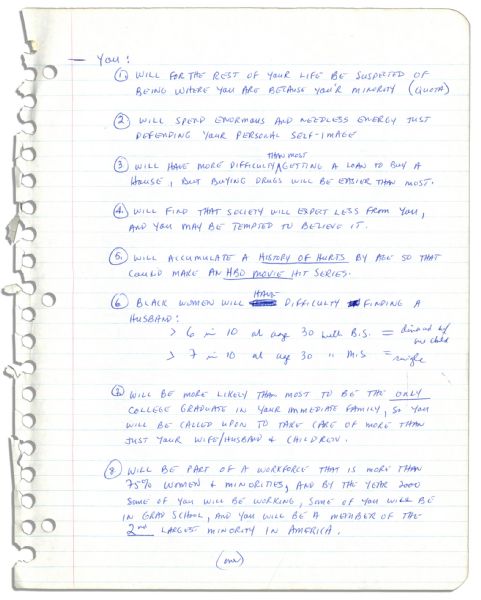 — You:
① WILL FOR THE REST OF YOUR LIFE BE SUSPECTED OF
BEING WHERE YOU ARE BECAUSE YOU'R MINORITY (QUOTA)
② WILL SPEND ENORMOUS AND NEEDLESS ENERGY JUST
DEFENDING YOUR PERSONAL SELF-IMAGE
THAN MOST
③ WILL HAVE MORE DIFFICULTY ^ GETTING A LOAN TO BUY A
HOUSE, BUT BUYING DRUGS WILL BE EASIER THAN MOST.
④ WILL FIND THAT SOCIETY WILL EXPECT LESS FROM YOU,
AND YOU MAY BE TEMPTED TO BELIEVE IT.
⑤ WILL ACCUMULATE A HISTORY OF HURTS BY AGE 50 THAT
COULD MAKE AN HBO MOVIE HIT SERIES.
HAVE
⑥ BLACK WOMEN WILL DIFFICULTY FINDING A
HUSBAND:
> 6 in 10 at age 30 with B.S. = divorced w/ one child
> 7 in 10 at age 30 " M.S = single
⑦ WILL BE MORE LIKELY THAN MOST TO BE THE ONLY
COLLEGE GRADUATE IN YOUR IMMEDIATE FAMILY, SO YOU
WILL BE CALLED UPON TO TAKE CARE OF MORE THAN
JUST YOUR WIFE/HUSBAND & CHILDREN.
⑧ WILL BE PART OF A WORKFORCE THAT IS MORE THAN
75% WOMEN & MINORITIES, AND BY THE YEAR 2000
SOME OF YOU WILL BE WORKING, SOME OF YOU WILL BE
IN GRAD SCHOOL, AND YOU WILL BE A MEMBER OF THE
2nd LARGEST MINORITY IN AMERICA.
(over)